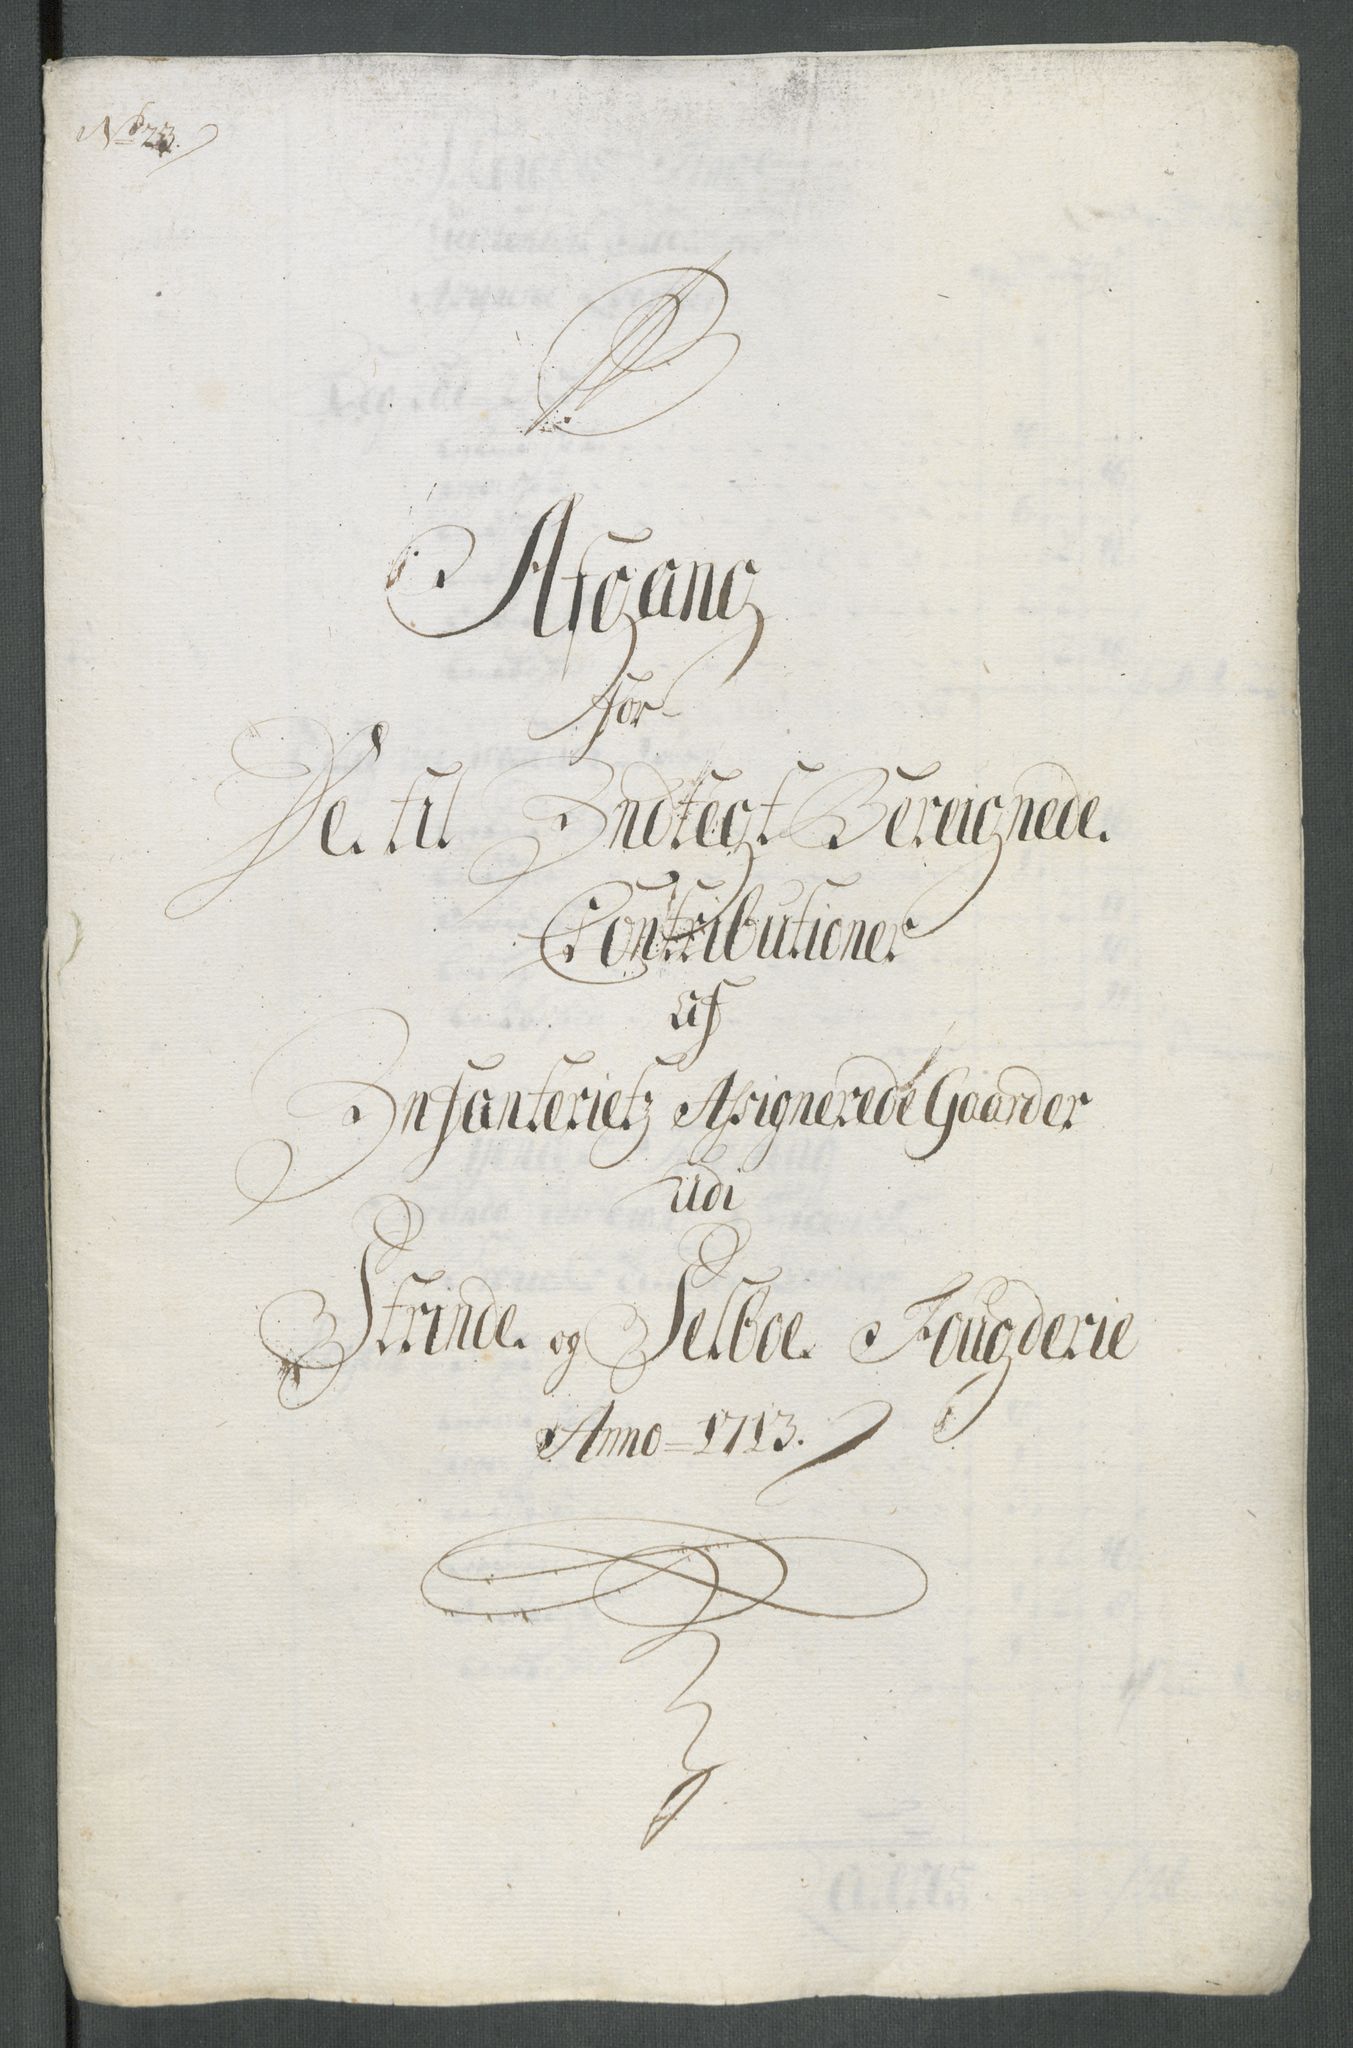 No 23.
Afgang
for
De til Indtegt Bereignede
Contributioner
af
Infanteriets Assignerede Gaarder
udi
Strinde og Selboe Fougderie
Anno 1713.